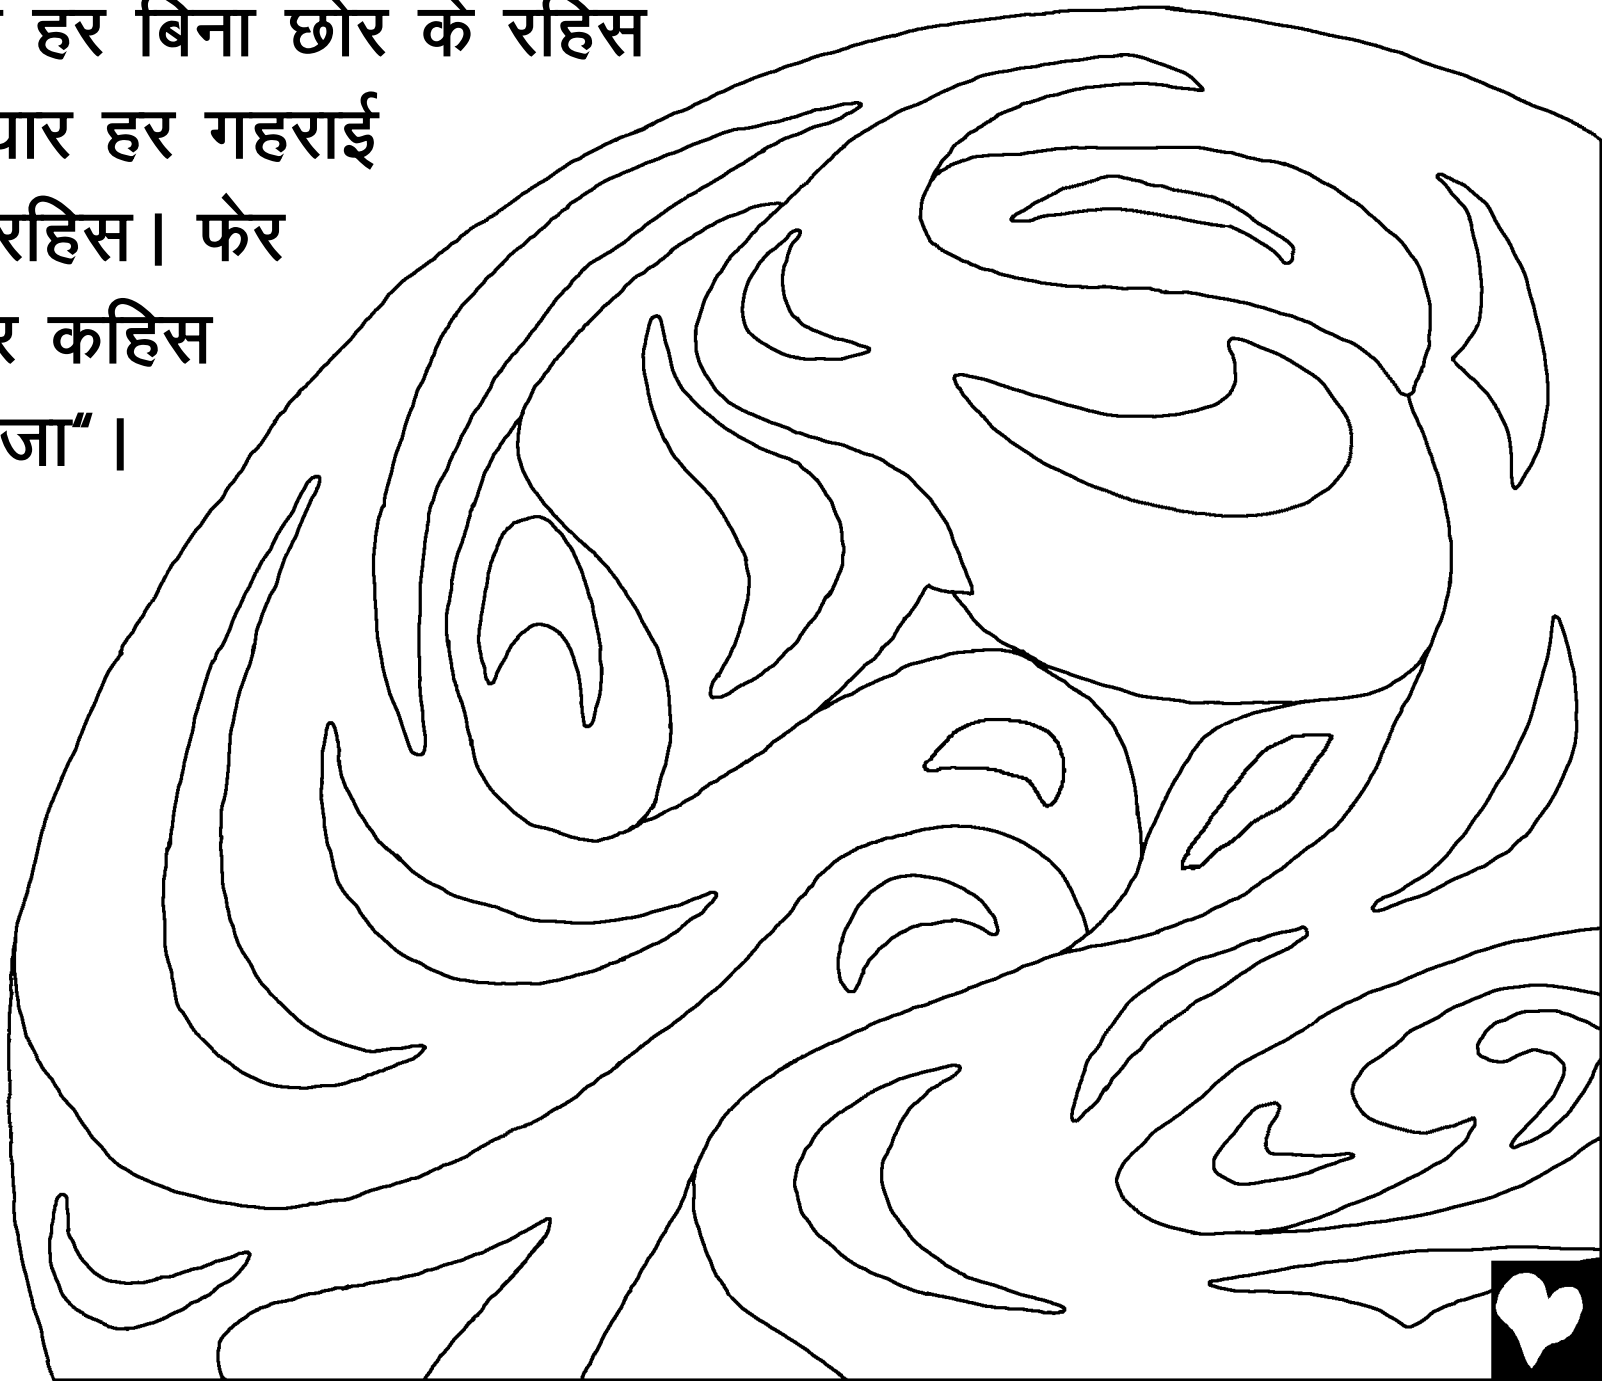 हर बिना छोर के रहिस
हर गहराई
रहिस। फेर
कहिस
जा“।